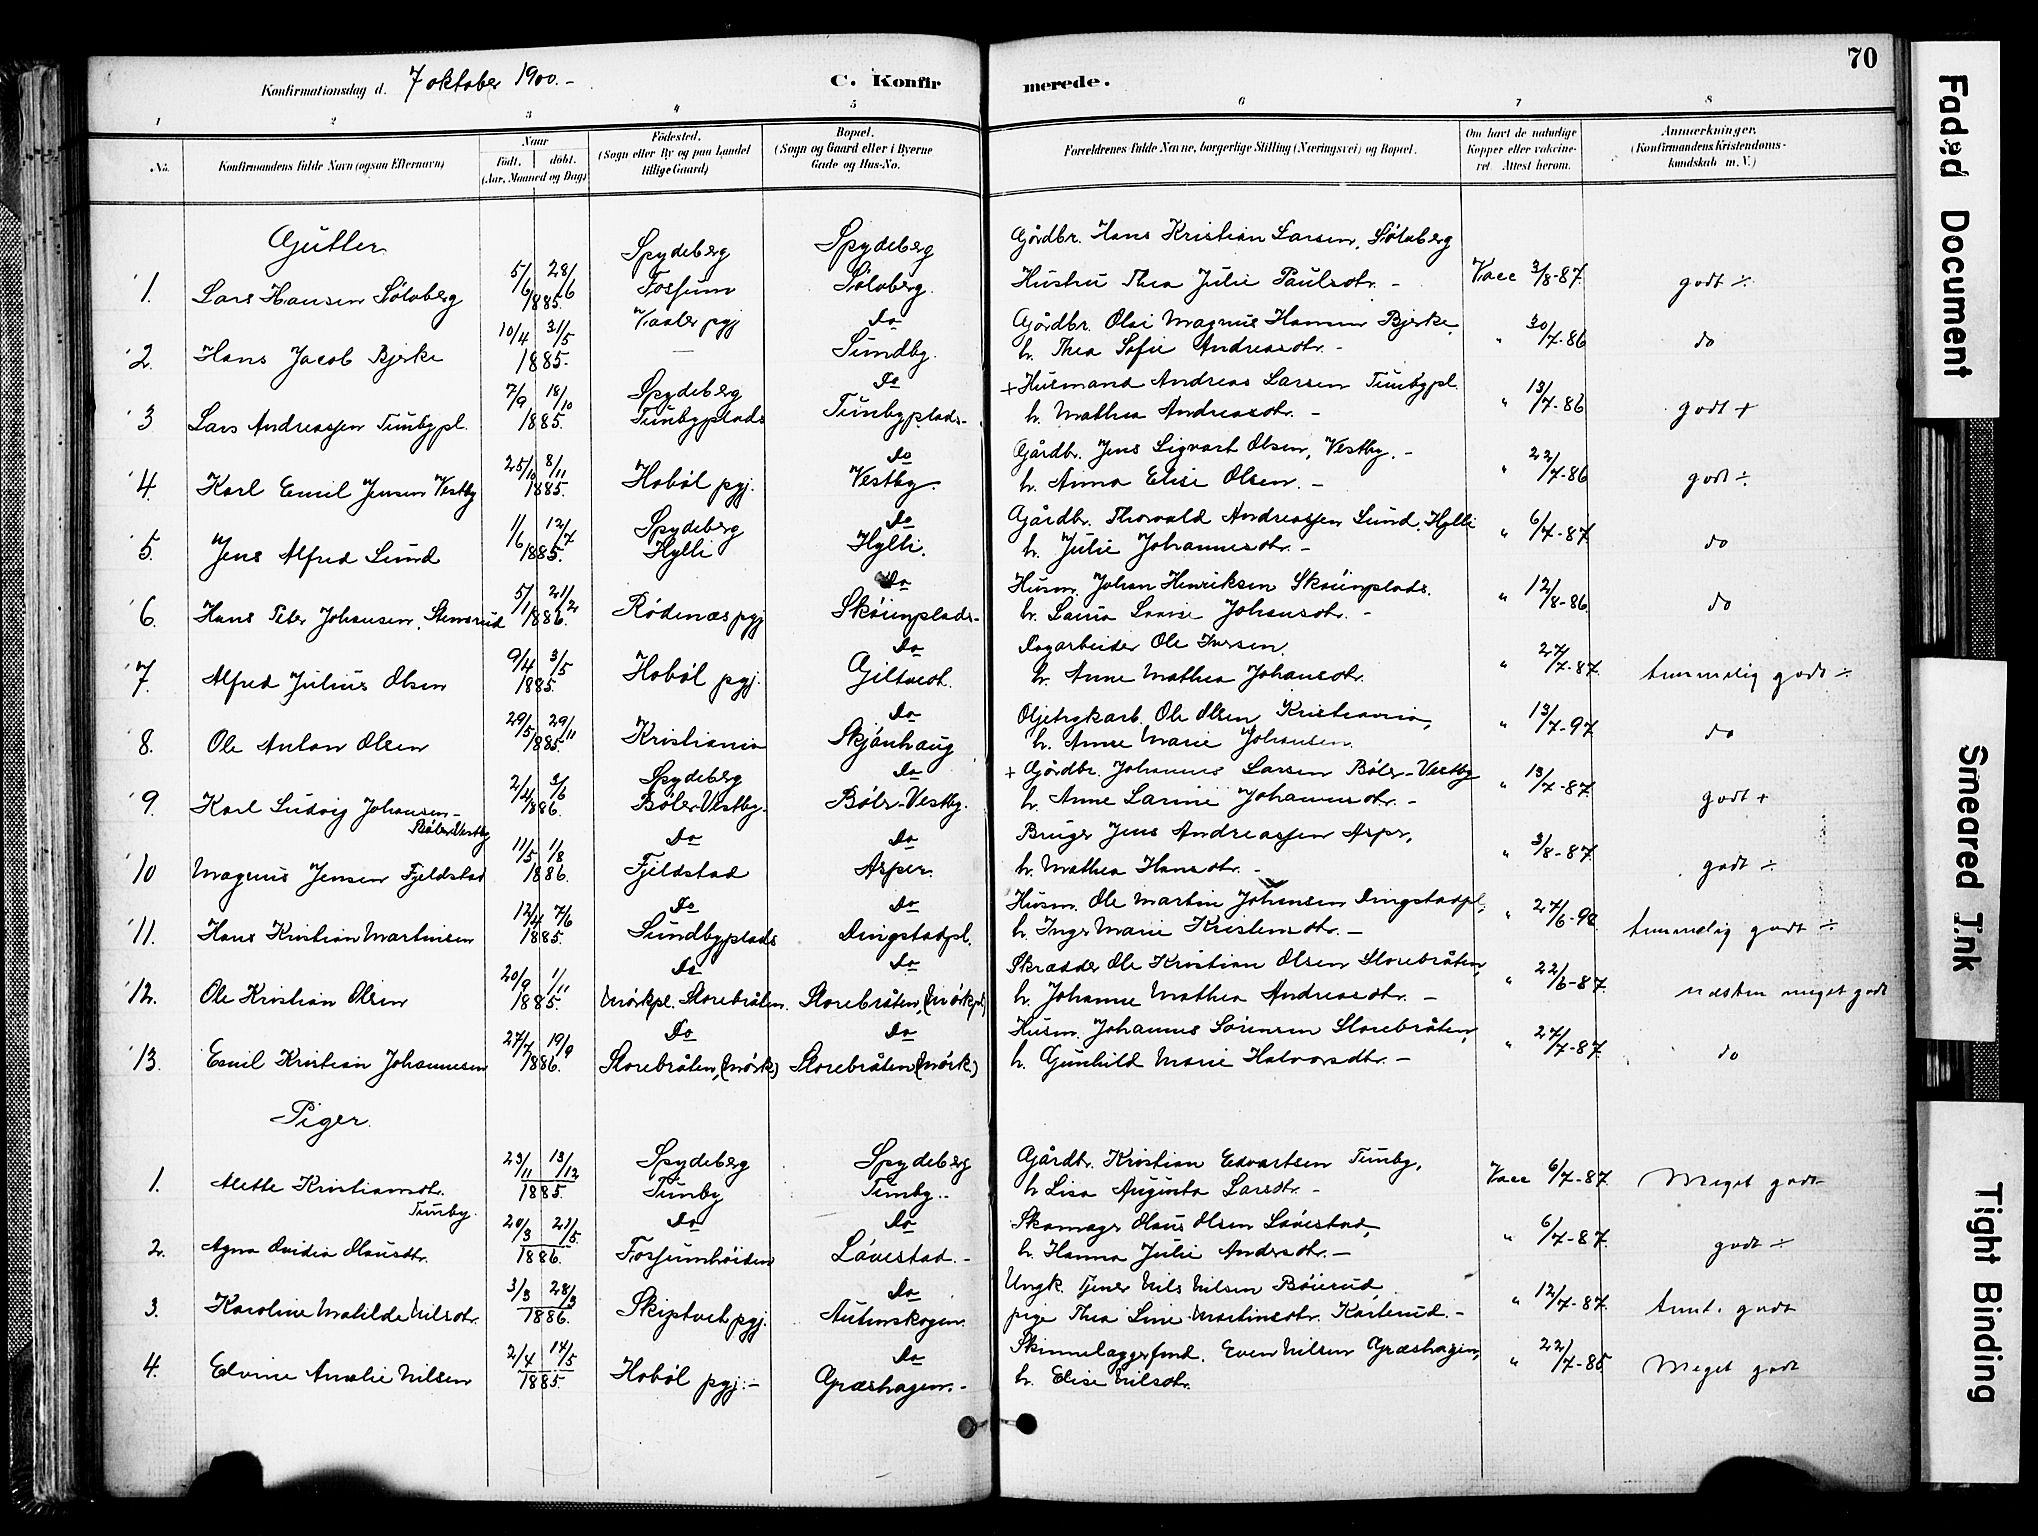 70
Konfirmationsdag d. 7 oktober 1900.-
C. Konfirmerede.
1 2 3 4 5 6 7 8
No. Konfirmandens fulde Navn (ogsaa Efternavn) Naar Født. døbt. (Aar, Maaned og Dag) Fødested. (Sogn eller By og paa Landet tillige Gaard) Bopæl. (Sogn og Gaard eller i Byerne Gade og Hus-No. Forældrenes fulde Navne, borgerlige Stilling (Næringsvei) og Bopæl. Om havt de naturlige Kopper eller vakcineret. Attest herom. Anmerkninger. (Konfirmandens Kristendomskundskab m. V.)
Gutter
1. Lars Hansen Sölvberg 5/6 28/6 1885. Spydeberg Fossum Spydeberg Sölvberg. Gårdbr. Hans Kristian Larsen, Sölvberg
Hustru Thea Julie Paulsdtr. - Vacc 3/8-87. godt ÷
2. Hans Jacob Bjerke 10/4 31/5 1885. Vaaler pgj do Sundby. Gårdbr. Olai Magnus Hansen Bjerke,
h. Thea Sofie Andreasdtr. - " 30/7-86 do
3 Lars Andreassen Timbypl. 7/9 18/10 1885. Spydeberg Timbyplads do Timbyplads- + Husmand Andreas Larsen Timbypl.
h. Mathea Andreasdtr. - " 13/7-86 godt +
4. Karl Emil Jensen Vestby 25/10 8/11 1885. Hoböl pgj. do Vestby. Gårdbr. Jens Sigvart Olsen, Vestby. -
h. Anna Elise Olsen. - " 22/7-86 godt ÷
5. Jens Alfred Lund 1/6 12/7 1885. Spydeberg Hylli do Hylli. Gårdbr. Thorvald Andreassen Lund, Hylli
h. Julie Johannesdtr. - " 6/7-87. do
6. Hans Peter Johansen, Stensrud 5/1 21/2 1886. Rödenæs pgj do Sköienplads- Husm. Johan Henriksen Sköienplads.
h. Johansdtr. - " 12/8-86. do
7. Alfred Julius Olsen 9/4 3/5 1885. Hoböl pgj. do Giltvedt. Dagarbeider Ole Iversen.
h. Anne Mathea Johansdtr. " 27/7-87. temmelig godt ÷
8. Ole Anton Olsen 29/5 29/11 1885. Kristiania do Skjönhaug Ole Olsen, Kristiania,
h. Anne Marie Johansen. " 13/7-97 do
9 Karl Ludvig Johansen- Böler-Vestby 2/4 3/6 1886. Spydeberg Böler Vestby. do Böler-Vestby. + Gårdbr. Johannes Larsen Böler-Vestby
h. Anne Larine Johannesdtr. - " 13/7-87. godt +
10 Magnus Jensen Fjeldstad 11/5 1/8 1886. do Fjeldstad do Asper. Bruger Jens Andreassen Asper,
h. Mathea Hansdtr. - " 3/8-87. godt ÷
11. Hans Kristian Martinsen 12/4 7/6 1885. do Sundbyplads do Dingstadpl. Husm. Ole Martin Johansen Dingstadpl,
h. Inger Marie Kristensdtr. - " 27/6-90. temmelig godt ÷
12. Ole Kristian Olsen 20/9 1/11 1885. do Mörkpl. Storebråten. do Storebråten, (Mörkpl) Skrædder Ole Kristian Olsen Storebråten,
h. Johanne Mathea Andreasdtr. - " 22/6-87. næsten meget godt
13. Emil Kristian Johannesen 27/7 19/9 1886. do Storebråten, (Mörk) do Storebråten (Mörk.) Husm. Johannes Sörensen Storebråten,
h. Gunhild Marie Halvorsdtr. - " 27/7-87. do
Piger.
1. Alette Kristiansdtr. Timby. 23/11 13/12 1885. Spydeberg Timby Spydeberg Timby.. Gårdbr. Kristian Edvartsen Timby,
h. Lisa Augusta Larsdtr. - Vacc 6/7-87. Meget godt
2. Agna Ovidia Olausdtr. 20/3 21/5. 1886. do Fossumhöiden do Lövestad.- Skomager Olaus Olsen Lövestad,
h. Hanna Julie Andersdtr. - " 6/7-87. godt ÷
3. Karoline Matilde Nilsdtr. 3/3 28/3 1886. Skiptvet pgj. do Autenskogen. Ungk. tjener Nils Nilsen Böierud,
pige Thea Line Martinsdtr. Karlsrud. - " 12/7-87. teml. godt
4. Elvine Amalie Nilsen 2/4 14/5 1885. Hoböl pgj.- do Græshagen.- Skinnelæggerformd. Even Nilsen Græshagen,
h. Elise Nilsdtr. " 22/7-85 Meget godt
Faded Document
Smeared Ink
Tight Binding